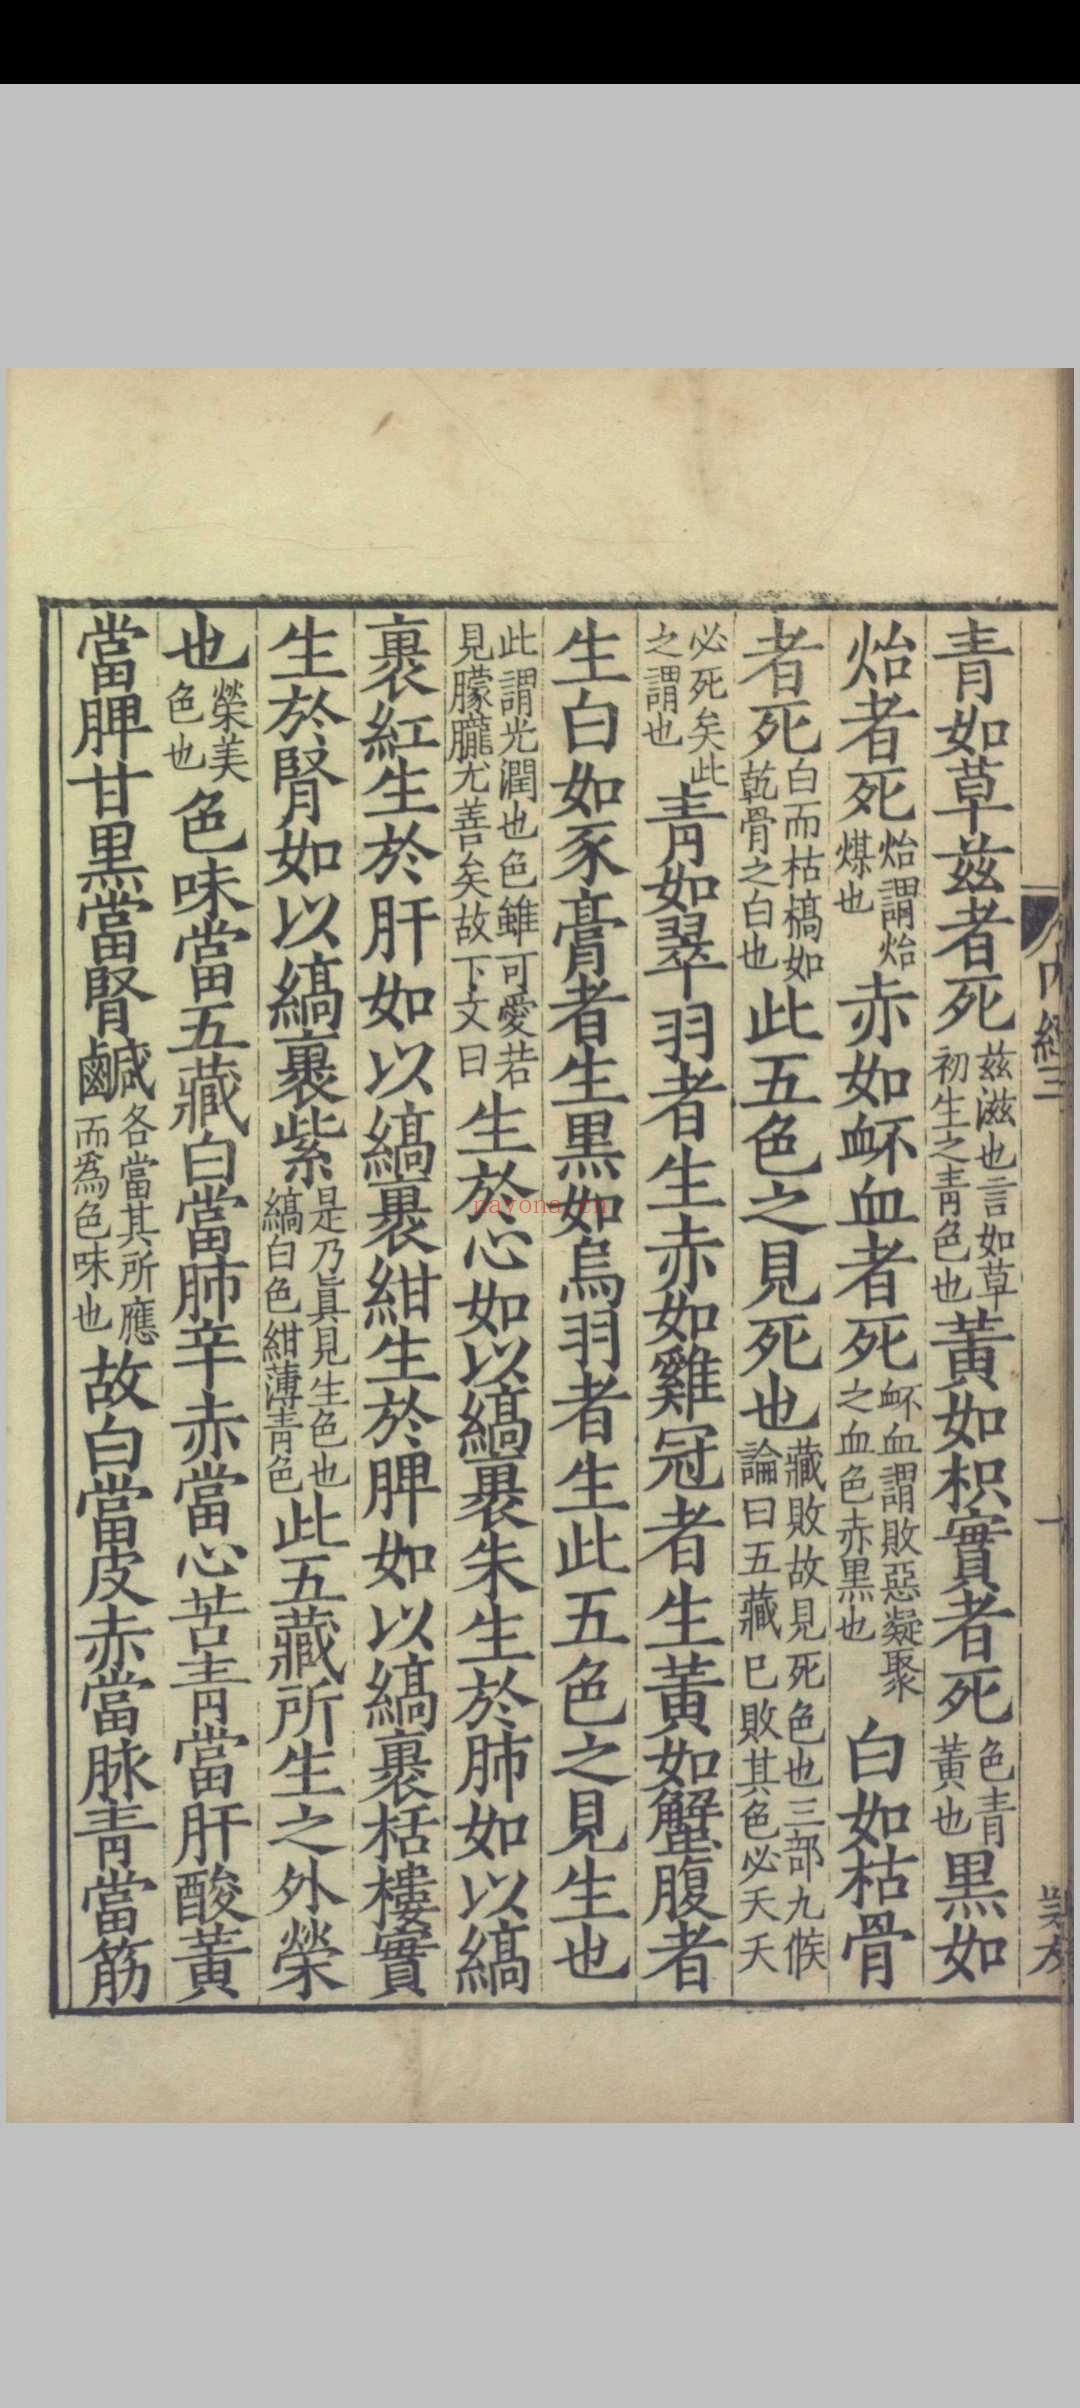 青如草茲者死茲滋也言如草初生之青色也黃如枳實者死色青黃也黑如
炲者死炲謂炲煤也赤如衃血者死衃血謂敗惡凝聚之血色赤黑也白如枯骨
者死白而枯槁如乾骨之白也此五色之見死也藏敗故見死色也三部九候論曰五藏已敗其色必夭夭
必死矣此之謂也青如翠羽者生赤如雞冠者生黃如蟹腹者
生白如豕膏者生黑如烏羽者生此五色之見生也
此謂光潤也色雖可愛若見朦朧尤善矣故下文曰生於心如以縞裹朱生於肺如以縞
裹紅生於肝如以縞裹紺生於脾如以縞裹栝樓實
生於腎如以縞裹紫是乃眞見生色也縞白色紺薄青色此五藏所生之外榮
也榮美色也色味當五藏白當肺辛赤當心苦青當肝酸黃
當脾甘黑當腎鹹各當其所應而爲色味也故白當皮赤當脉青當筋
內經三
nayona.cn